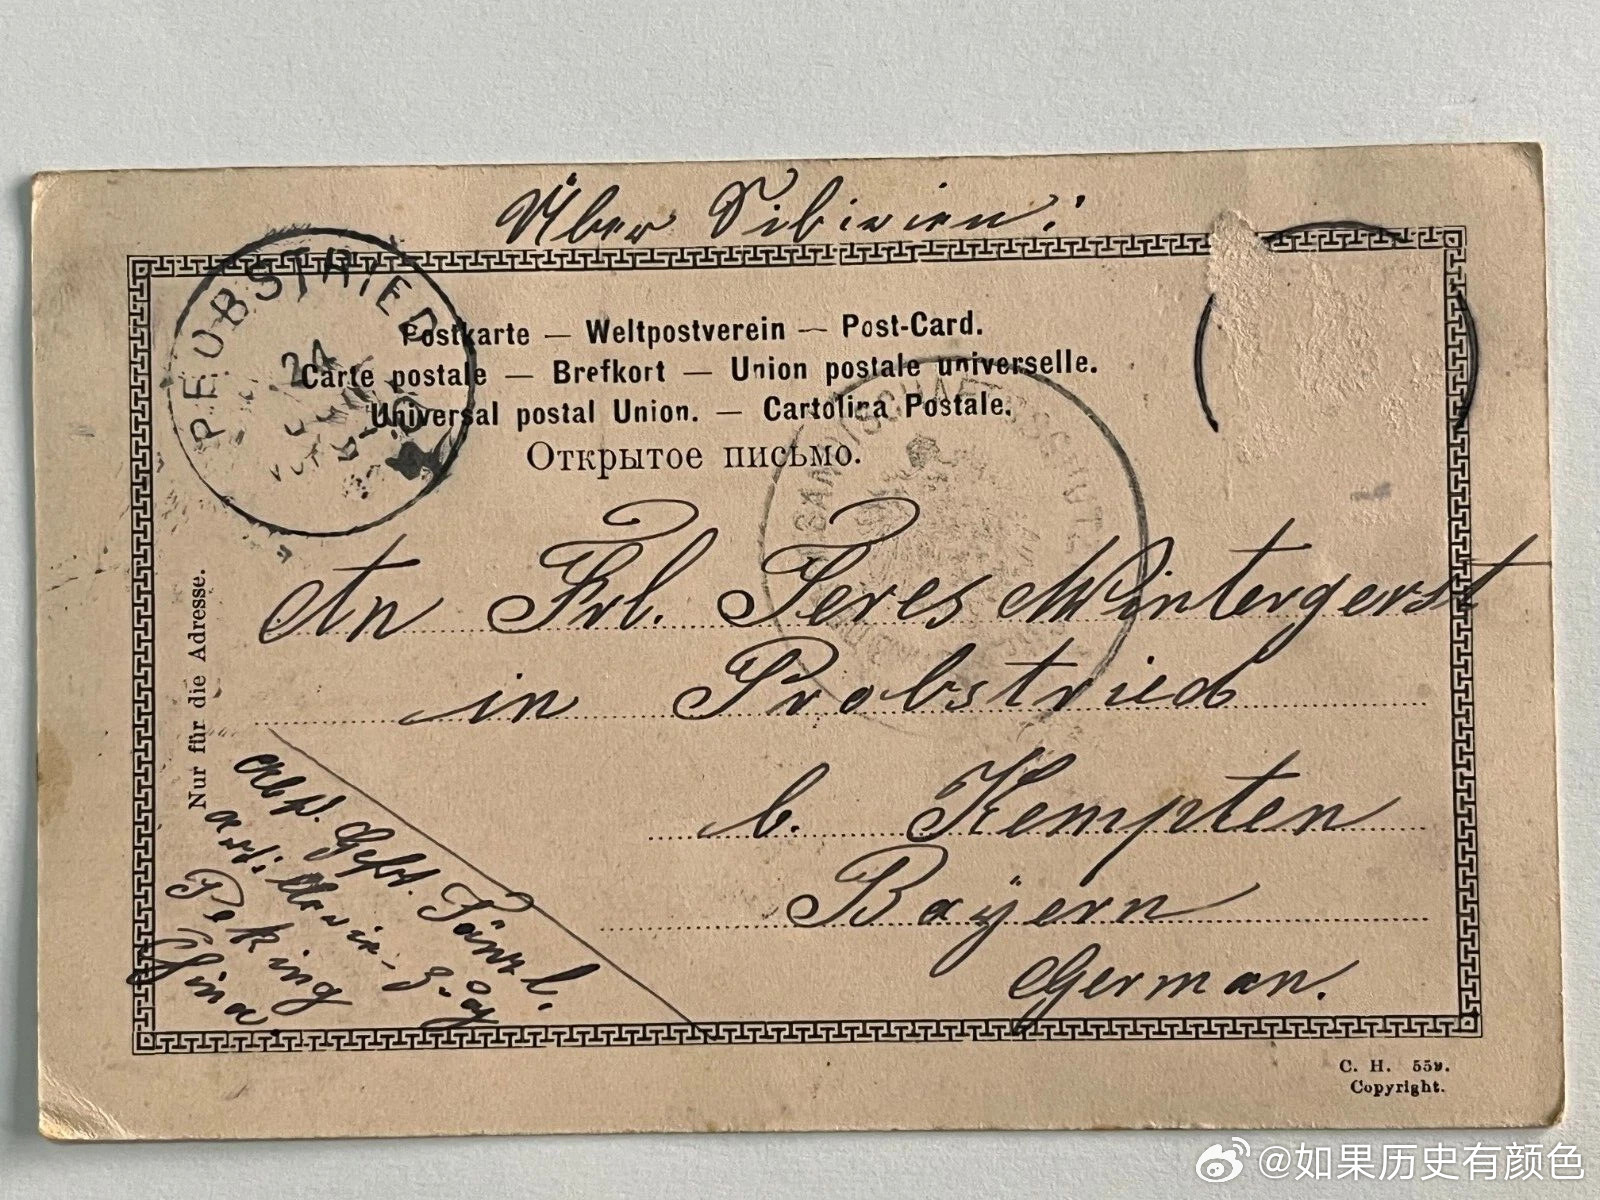 Über Sibirien:
PROBSTRIED
24
Postkarte — Weltpostverein — Post-Card.
Carte postale — Brefkort — Union postale universelle.
Universal postal Union. — Cartolina Postale.
Открытое письмо.
GESANDTSCHAFTSSCHUTZ
An Frl. Teres Wintergerst
in Probstried
b. Kempten
Bayern
German.
Nur für die Adresse.
Abs. Gefr. Tänzl.
artillerie-Zug
Peking
China.
C. H. 559.
Copyright.
@如果历史有颜色